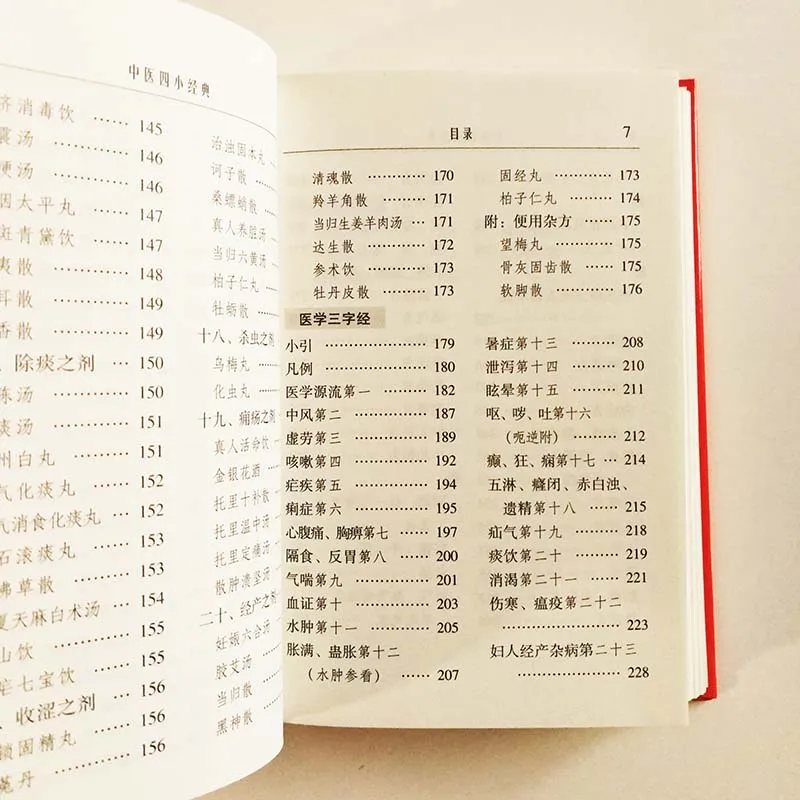 中医四小经典
济消毒饮 …… 145
震汤 …… 146
梗汤 …… 146
咽太平丸 …… 147
斑青黛饮 …… 147
夷散 …… 148
耳散 …… 149
香散 …… 149
、除痰之剂 …… 150
陈汤 …… 150
痰汤 …… 151
州白丸 …… 151
气化痰丸 …… 152
气消食化痰丸 …… 152
石滚痰丸 …… 153
沸草散 …… 153
夏天麻白术汤 …… 154
山饮 …… 155
牟七宝饮 …… 155
、收涩之剂 …… 156
锁固精丸 …… 156
菟丹
治浊固本丸
诃子散
桑螵蛸散
真人养脏汤
当归六黄汤
柏子仁丸
牡蛎散
十八、杀虫之剂
乌梅丸
化虫丸
十九、痈疡之剂
真人活命饮
金银花酒
托里十补散
托里温中汤
托里定痛汤
散肿溃坚汤
二十、经产之剂
妊娠六合汤
胶艾汤
当归散
黑神散
目录 7
清魂散 ………… 170
羚羊角散 ………… 171
当归生姜羊肉汤 …… 171
达生散 ………… 172
参术饮 ………… 173
牡丹皮散 ………… 173
固经丸 ………… 173
柏子仁丸 ………… 174
附：便用杂方 ………… 175
望梅丸 ………… 175
骨灰固齿散 ………… 175
软脚散 ………… 176
医学三字经
小引 ………… 179
凡例 ………… 180
医学源流第一 ………… 182
中风第二 ………… 187
虚劳第三 ………… 189
咳嗽第四 ………… 192
疟疾第五 ………… 194
痢症第六 ………… 195
心腹痛、胸痹第七 …… 197
隔食、反胃第八 …… 200
气喘第九 ………… 201
血证第十 ………… 203
水肿第十一 ………… 205
胀满、蛊胀第十二
（水肿参看） …… 207
暑症第十三 ………… 208
泄泻第十四 ………… 210
眩晕第十五 ………… 211
呕、哕、吐第十六
（呃逆附） ………… 212
癫、狂、痫第十七 … 214
五淋、癃闭、赤白浊、
遗精第十八 ………… 215
疝气第十九 ………… 218
痰饮第二十 ………… 219
消渴第二十一 ………… 221
伤寒、瘟疫第二十二
………… 223
妇人经产杂病第二十三
………… 228